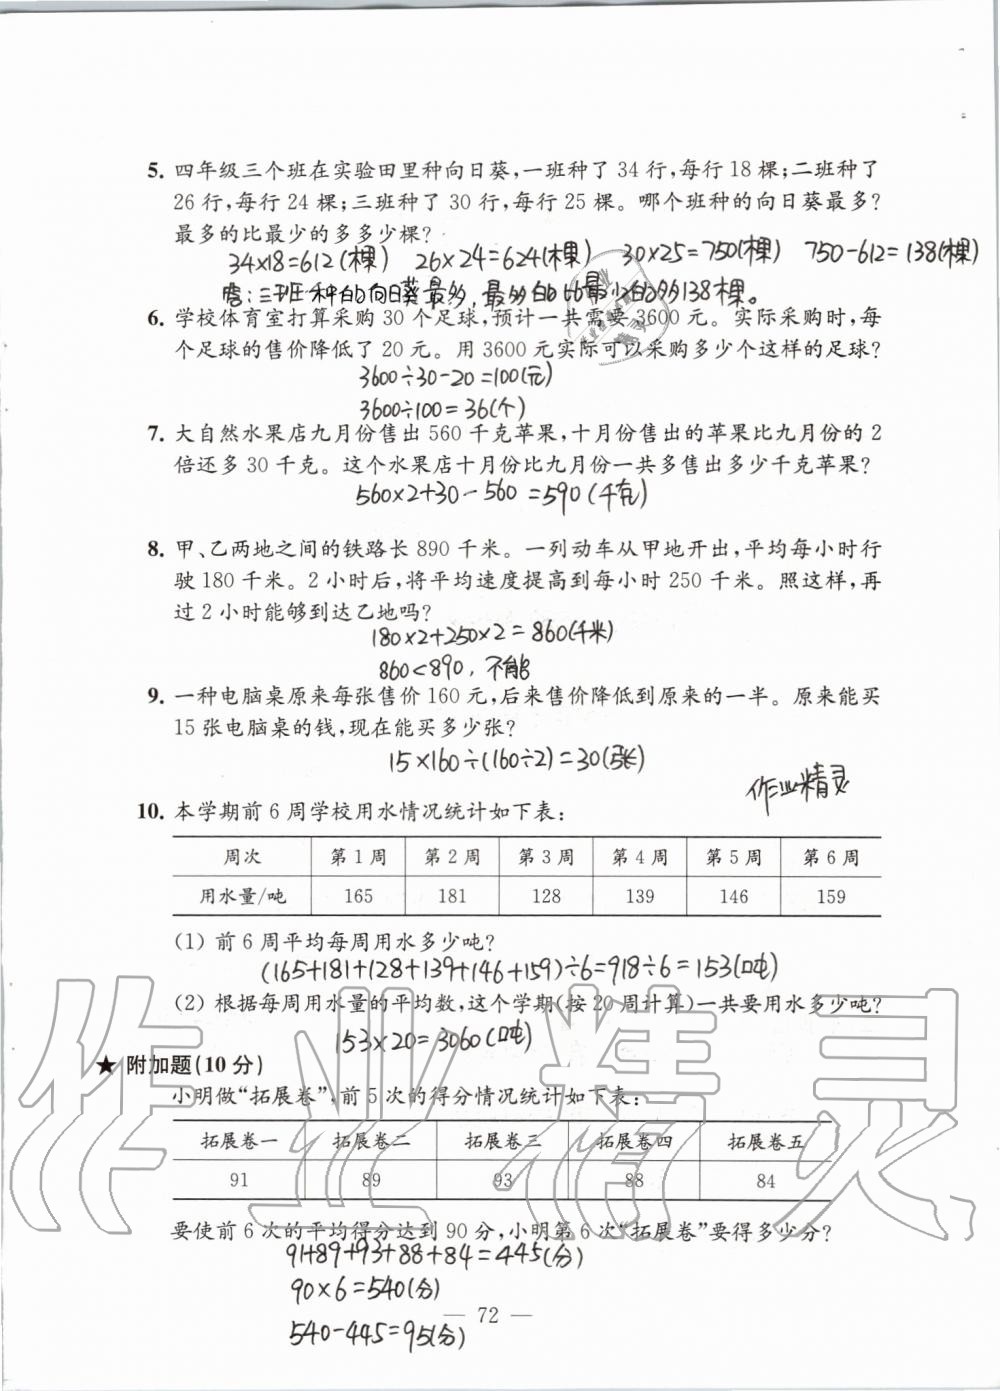 5. 四年级三个班在实验田里种向日葵,一班种了 34 行,每行 18 棵;二班种了
26 行,每行 24 棵;三班种了 30 行,每行 25 棵。哪个班种的向日葵最多?
最多的比最少的多多少棵?
34×18=612(棵) 26×24=624(棵) 30×25=750(棵) 750-612=138(棵)
答:三班种的向日葵最多,最多的比最少的多138棵。
6. 学校体育室打算采购 30 个足球,预计一共需要 3600 元。实际采购时,每
个足球的售价降低了 20 元。用 3600 元实际可以采购多少个这样的足球?
3600÷30-20=100(元)
3600÷100=36(个)
7. 大自然水果店九月份售出 560 千克苹果,十月份售出的苹果比九月份的 2
倍还多 30 千克。这个水果店十月份比九月份一共多售出多少千克苹果?
560×2+30-560=590(千克)
8. 甲、乙两地之间的铁路长 890 千米。一列动车从甲地开出,平均每小时行
驶 180 千米。2 小时后,将平均速度提高到每小时 250 千米。照这样,再
过 2 小时能够到达乙地吗?
180×2+250×2=860(千米)
860<890,不能
9. 一种电脑桌原来每张售价 160 元,后来售价降低到原来的一半。原来能买
15 张电脑桌的钱,现在能买多少张?
15×160÷(160÷2)=30(张)
作业精灵
10. 本学期前 6 周学校用水情况统计如下表:
周次 第 1 周 第 2 周 第 3 周 第 4 周 第 5 周 第 6 周
用水量/吨 165 181 128 139 146 159
(1) 前 6 周平均每周用水多少吨?
(165+181+128+139+146+159)÷6=918÷6=153(吨)
(2) 根据每周用水量的平均数,这个学期(按 20 周计算)一共要用水多少吨?
153×20=3060(吨)
★ 附加题(10 分)
小明做“拓展卷”,前 5 次的得分情况统计如下表:
拓展卷一 拓展卷二 拓展卷三 拓展卷四 拓展卷五
91 89 93 88 84
要使前 6 次的平均得分达到 90 分,小明第 6 次“拓展卷”要得多少分?
91+89+93+88+84=445(分)
90×6=540(分)
540-445=95(分)
— 72 —
作业精灵